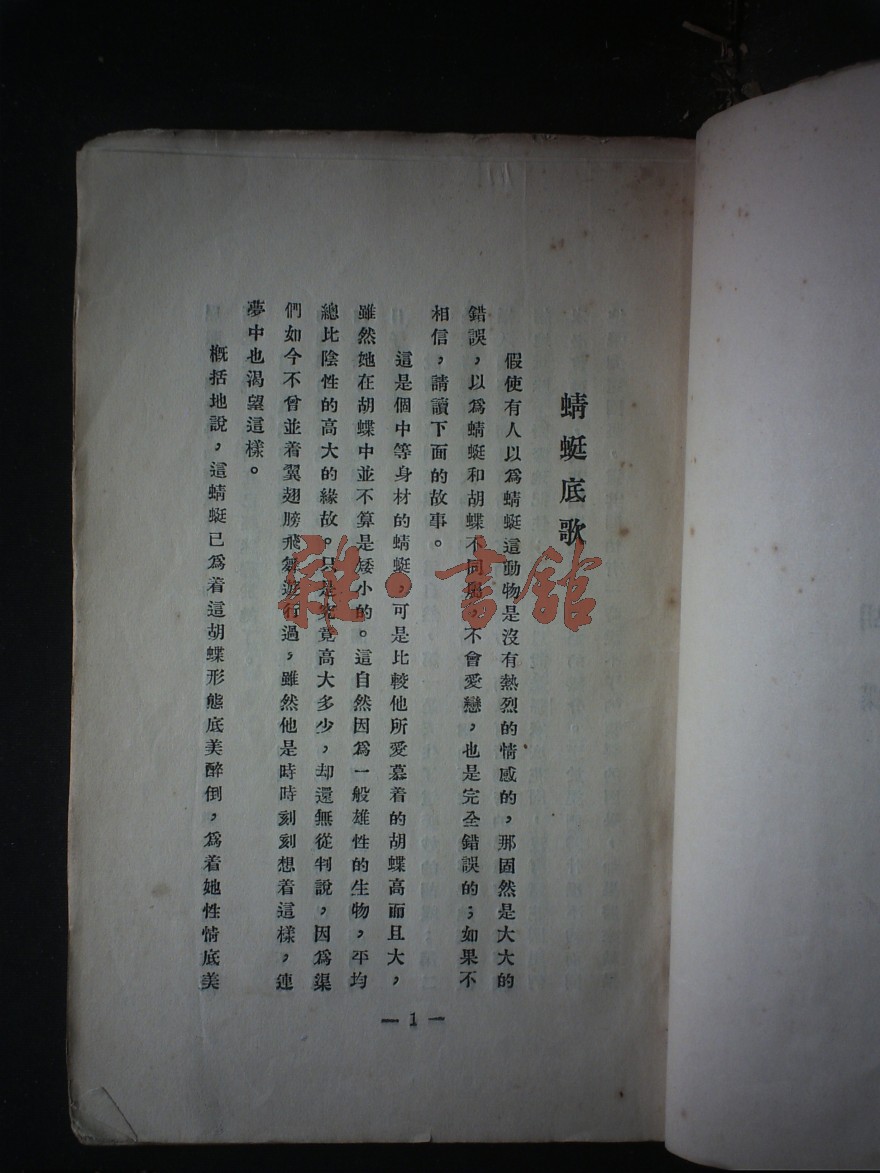 蜻蜓底歌
假使有人以爲蜻蜓這動物是沒有熱烈的情感的，那固然是大大的
錯誤，以爲蜻蜓和胡蝶不同，不會愛戀，也是完全錯誤的；如果不
相信，請讀下面的故事。
這是個中等身材的蜻蜓，可是比較他所愛慕着的胡蝶高而且大，
雖然她在胡蝶中並不算是矮小的。這自然因爲一般雄性的生物，平均
總比陰性的高大的緣故。只是究竟高大多少，却還無從判說，因爲渠
們如今不曾並着翼翅膀飛舞遊行過，雖然他是時時刻刻想着這樣，連
夢中也渴望這樣。
概括地說，這蜻蜓已爲着這胡蝶形態底美醉倒，爲着她性情底美
— 1 —
雜·書舘